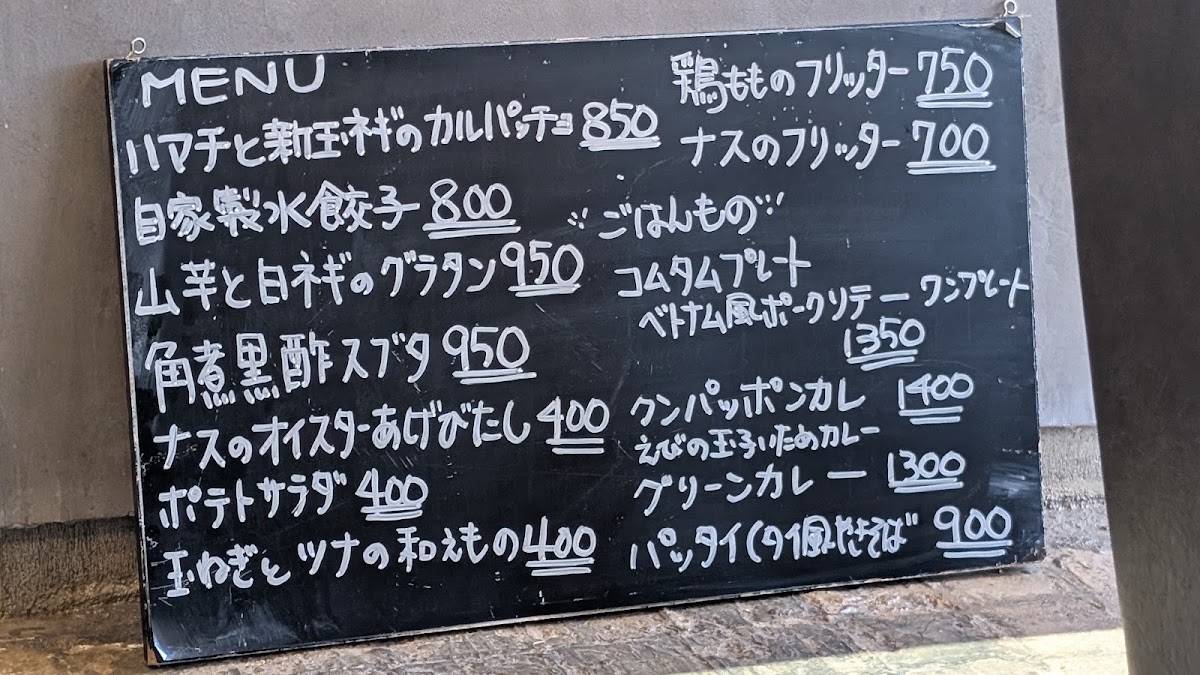 MENU
ハマチと新玉ネギのカルパッチョ 850
自家製水餃子 800
山芋と白ネギのグラタン 950
角煮黒酢スブタ 950
ナスのオイスターあげびたし 400
ポテトサラダ 400
玉ねぎとツナの和えもの 400
鶏もものフリッター 750
ナスのフリッター 700
ごはんもの
コムタムプレート
ベトナム風ポークソテー ワンプレート
1350
クンパッポンカレ 1400
えびの玉子いためカレー
グリーンカレー 1300
パッタイ(タイ風やきそば 900